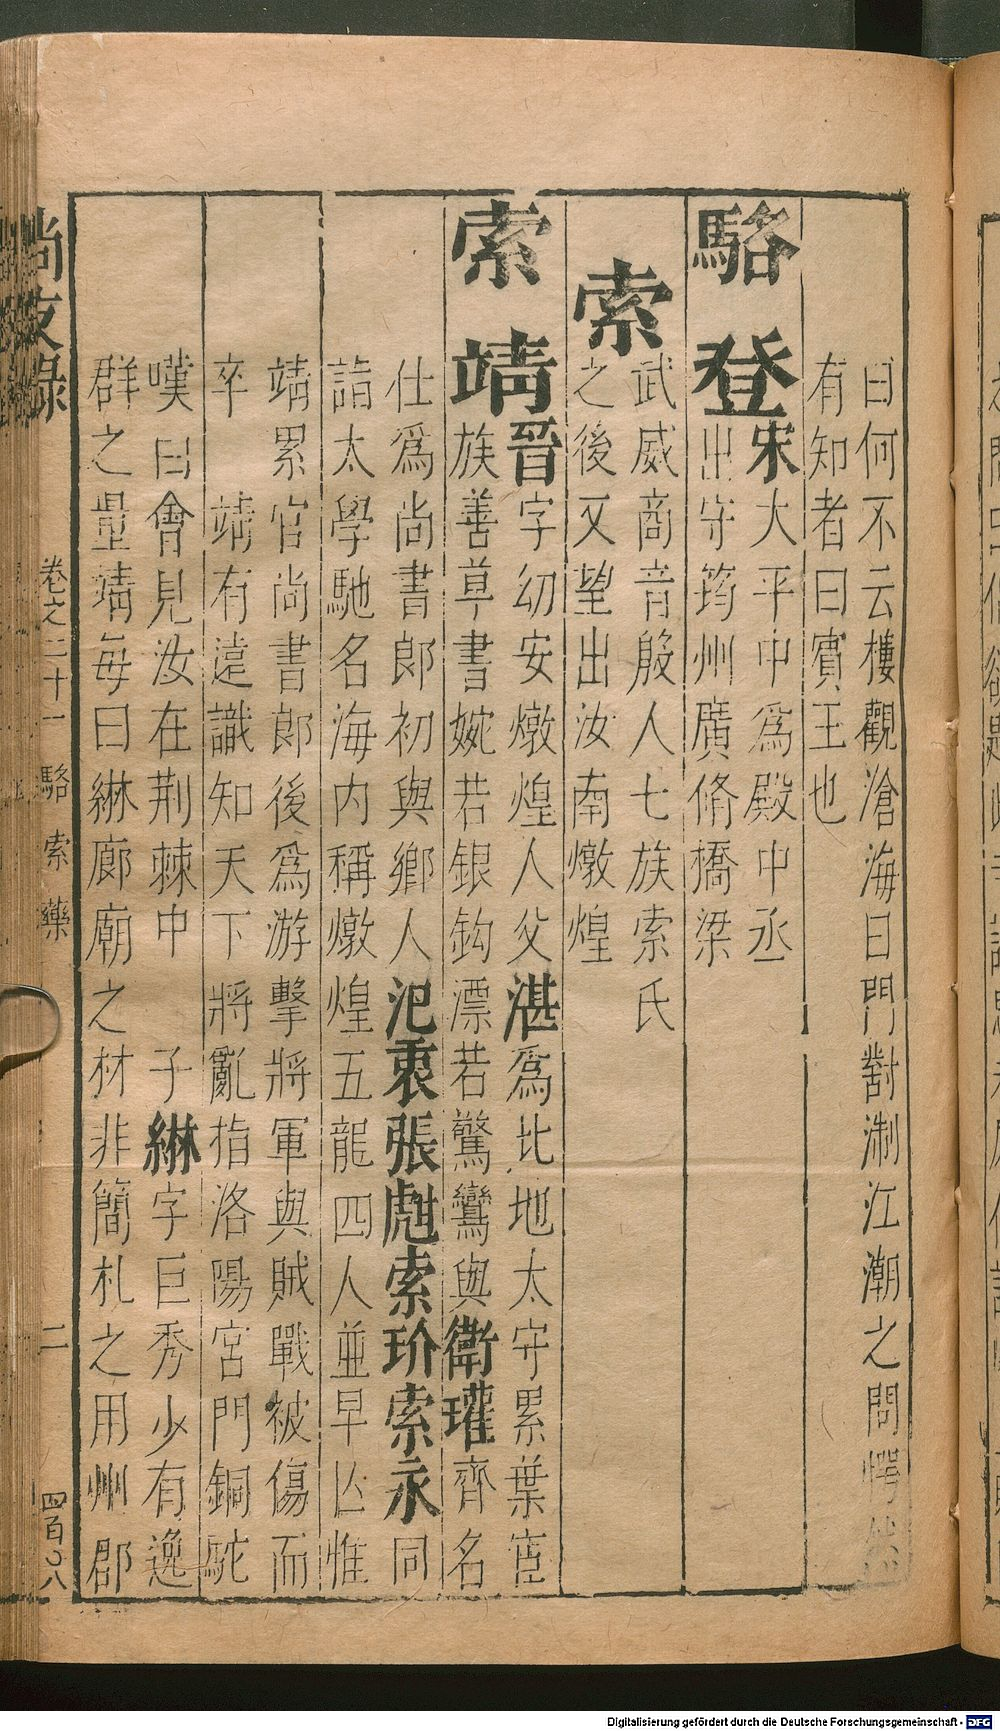 曰何不云樓觀滄海日門對淛江潮之問愕然
有知者曰賓王也
駱登宋大平中爲殿中丞
出守筠州廣脩橋梁
索武威商音殷人七族索氏
之後又望出汝南燉煌
索靖晉字幼安燉煌人父湛爲北地太守累葉宦
族善草書婉若銀鈎漂若驚鸞與衛瓘齊名
仕爲尚書郎初與鄉人氾衷張甝索玠索永同
詣太學馳名海内稱燉煌五龍四人並早亾惟
靖累官尚書郎後爲游擊將軍與賊戰被傷而
卒 靖有遠識知天下將亂指洛陽宮門銅駝
嘆曰會見汝在荆棘中 子綝字巨秀少有逸
群之量靖每曰綝廊廟之材非簡札之用州郡
尚友錄 卷之二十一 駱索藥 二 四百〇八
Digitalisierung gefördert durch die Deutsche Forschungsgemeinschaft - DFG